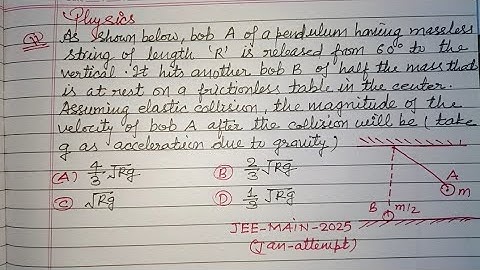 Physics
Q As shown below, bob A of a pendulum having massless
string of length 'R' is released from 60° to the
vertical. It hits another bob B of half the mass that
is at rest on a frictionless table in the center.
Assuming elastic collision, the magnitude of the
velocity of bob A after the collision will be (take
g as acceleration due to gravity)
(A) 4/3 √Rg (B) 2/3 √Rg
(C) √Rg (D) 1/3 √Rg
A
m
B m/2
JEE-MAIN-2025
(Jan-attempt)